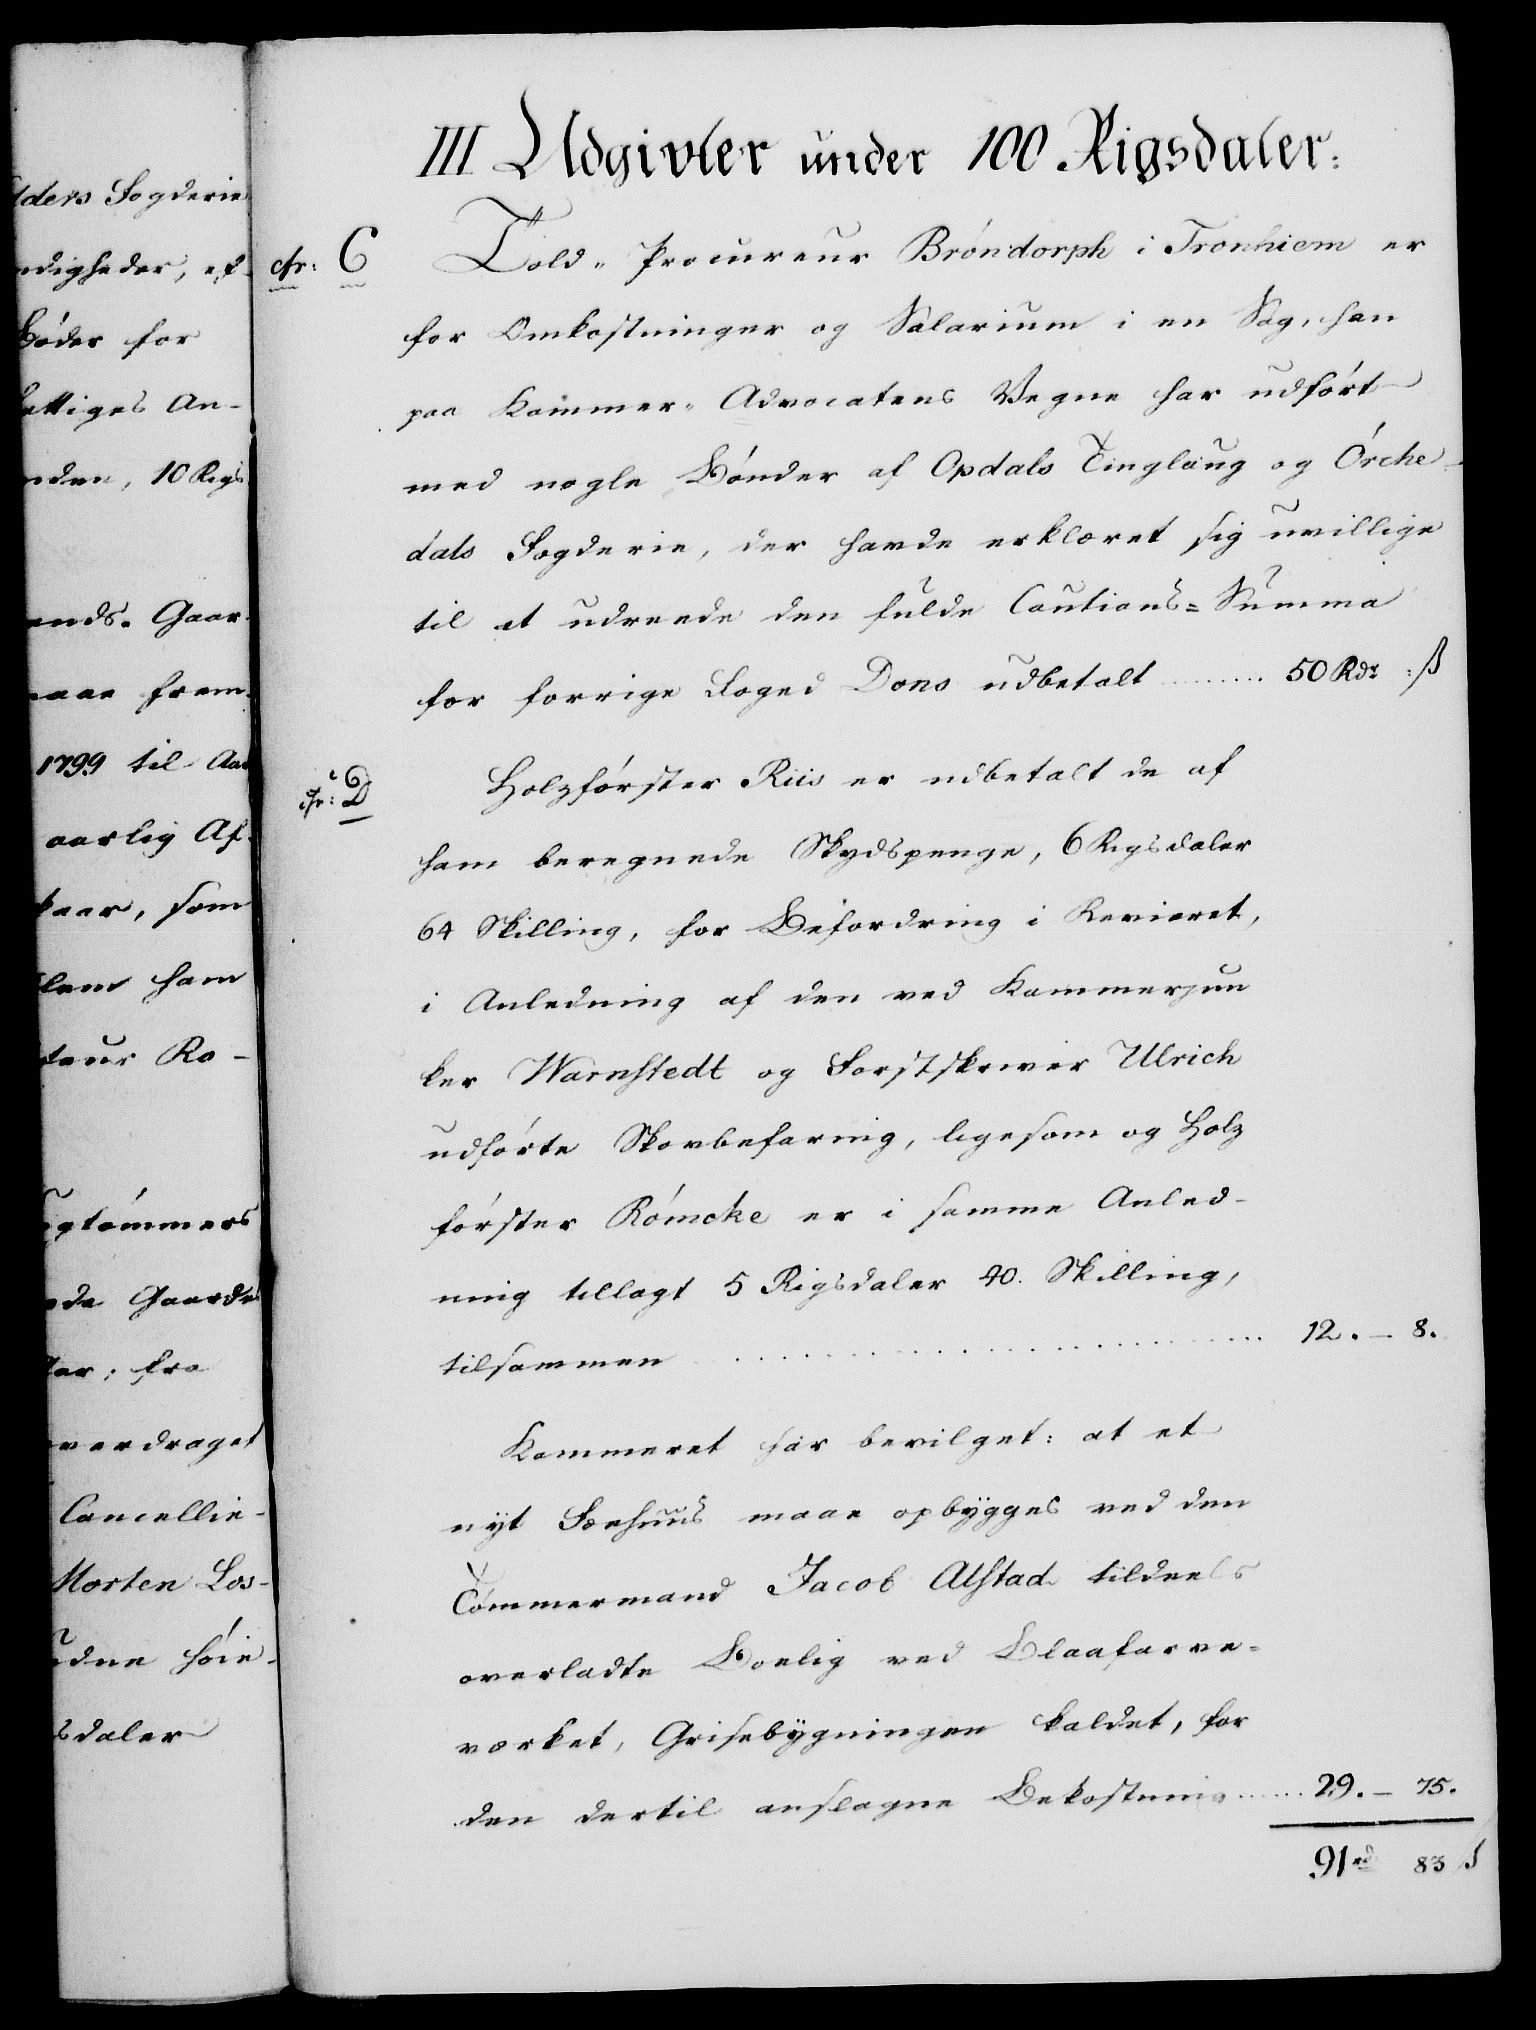 lders Fogderie
ndigheder, ef-
Bøder for
attiges An-
nden, 10 Rigs
ends. Gaar-
aae frem-
1799 til Aar
aarlig Af-
kaar, som
lem ham
teur Ro-
gtømmers
ede Gaardes
fra
verdraget
Cancellie-
Morten Los-
høie-
sdaler
III Udgivter under 100 Rigsdaler:
cfr: C Told-Procureur Bröndorph i Tronhiem er
for Omkostninger og Salarium i en Sag, han
paa Kammer-Advocatens Vegne har udført
med nogle Bönder af Opdals Tinglaug og Örche-
dals Fogderie, der havde erklæret sig uvillige
til at udreede den fulde Cautions=Summa
for forrige Foged Dons udbetalt ......... 50 Rdr : ß
cfr: D Holzförster Riis er udbetalt de af
ham beregnede Skydspenge, 6 Rigsdaler
64 Skilling, for Befordring i Revieret,
i Anledning af den ved Kammerjun
ker Warnstedt og Forstskriver Ulrich
udförte Skovbefaring, ligesom og Holz
förster Römcke er i samme Anled-
ning tillagt 5 Rigsdaler 40. Skilling,
tilsammen ......................... 12. — 8.
Kammeret har bevilget: at et
nyt Fæehuus maae opbygges ved den
Tömmermand Jacob Alstad tildeels
overladte Boelig ved Blaafarve-
værket, Grisebygningen kaldet, for
den dertil anslagne Bekostning ...... 29. — 75.
91 rd 83 ß